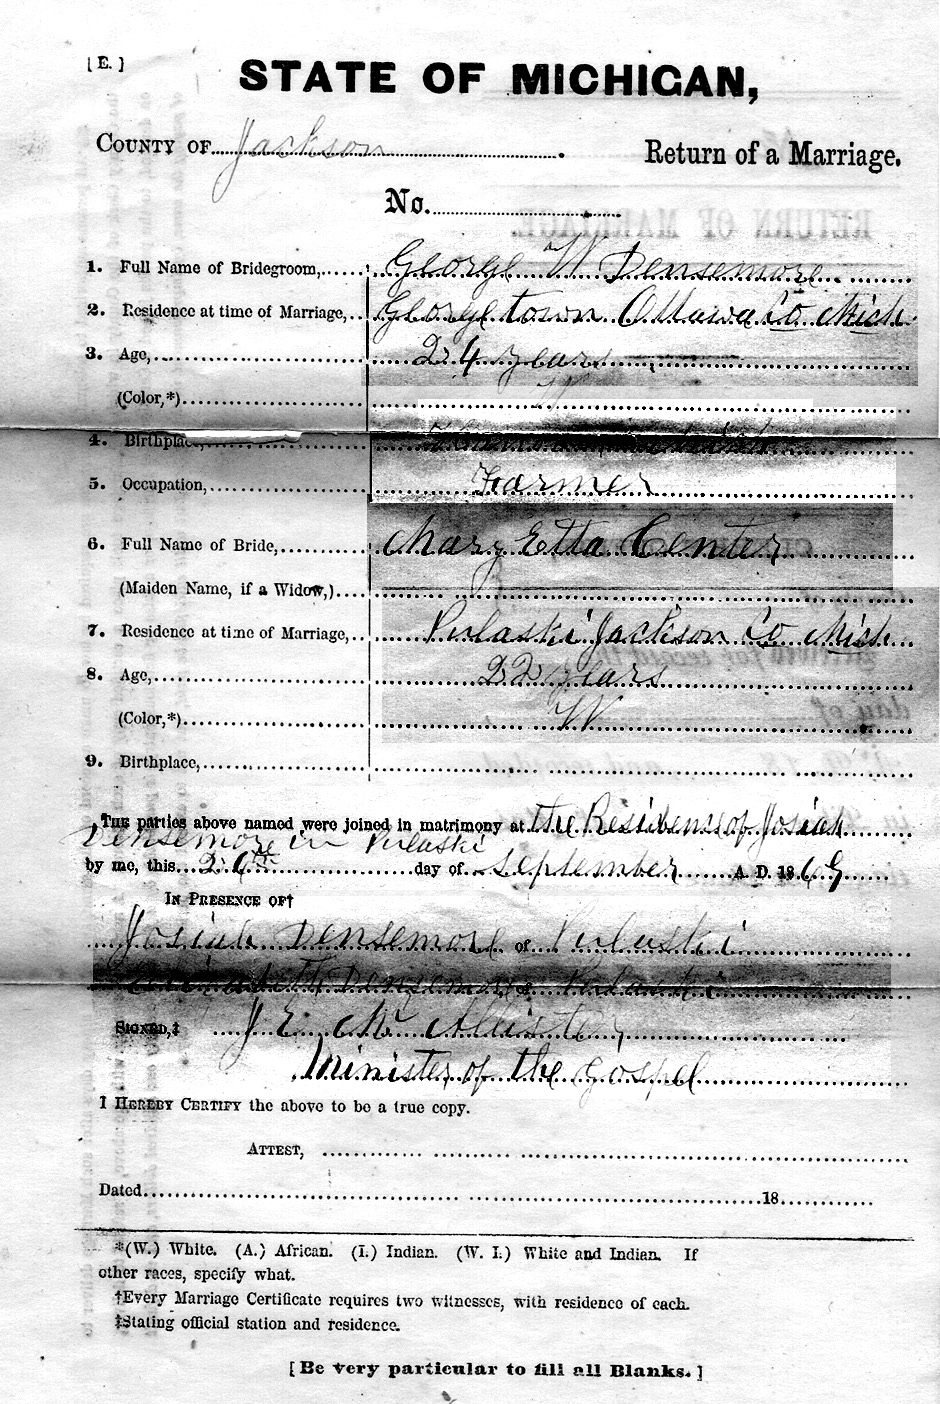 [ E. ]
STATE OF MICHIGAN,
COUNTY OF Jackson.
Return of a Marriage.
No.
1. Full Name of Bridegroom, George W Densemore
2. Residence at time of Marriage, Georgetown Ottawa Co Mich
3. Age, 24 years
(Color,*) W
4. Birthplace,
5. Occupation, Farmer
6. Full Name of Bride, Mary Etta Center
(Maiden Name, if a Widow,)
7. Residence at time of Marriage, Pulaski Jackson Co Mich
8. Age, 22 years
(Color,*) W
9. Birthplace,
THE parties above named were joined in matrimony at the Residence of Josiah
Densemore in Pulaski
by me, this 26th day of September A. D. 1869
IN PRESENCE OF†
Josiah Densemore of Pulaski
Densemore Pulaski
SIGNED,‡ J. E. McAllister
Minister of the Gospel
I HEREBY CERTIFY the above to be a true copy.
ATTEST,
Dated 18
*(W.) White. (A.) African. (I.) Indian. (W. I.) White and Indian. If
other races, specify what.
†Every Marriage Certificate requires two witnesses, with residence of each.
‡Stating official station and residence.
[ Be very particular to fill all Blanks. ]